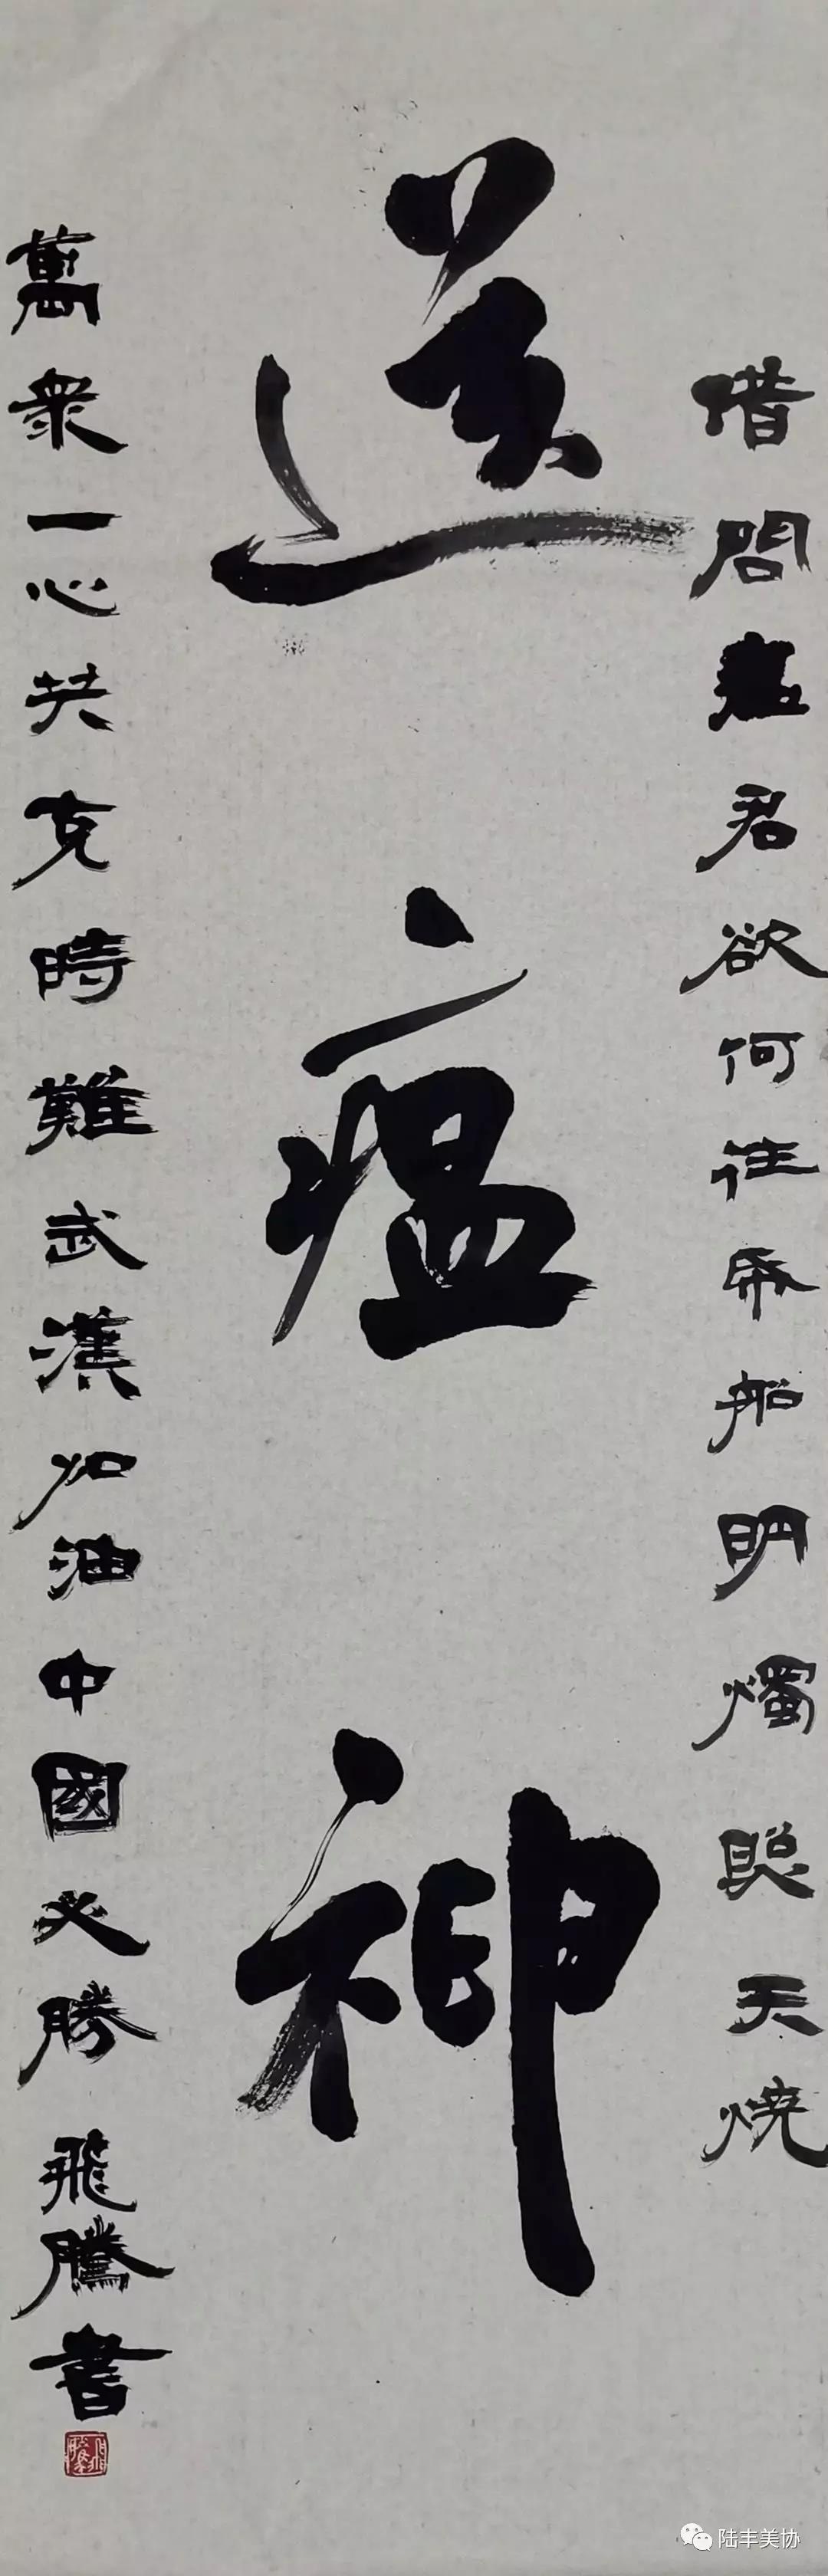 借問瘟君欲何往帋船明燭照天燒
送瘟神
萬眾一心共克時難武漢加油中國必勝飛騰書
陆丰美协